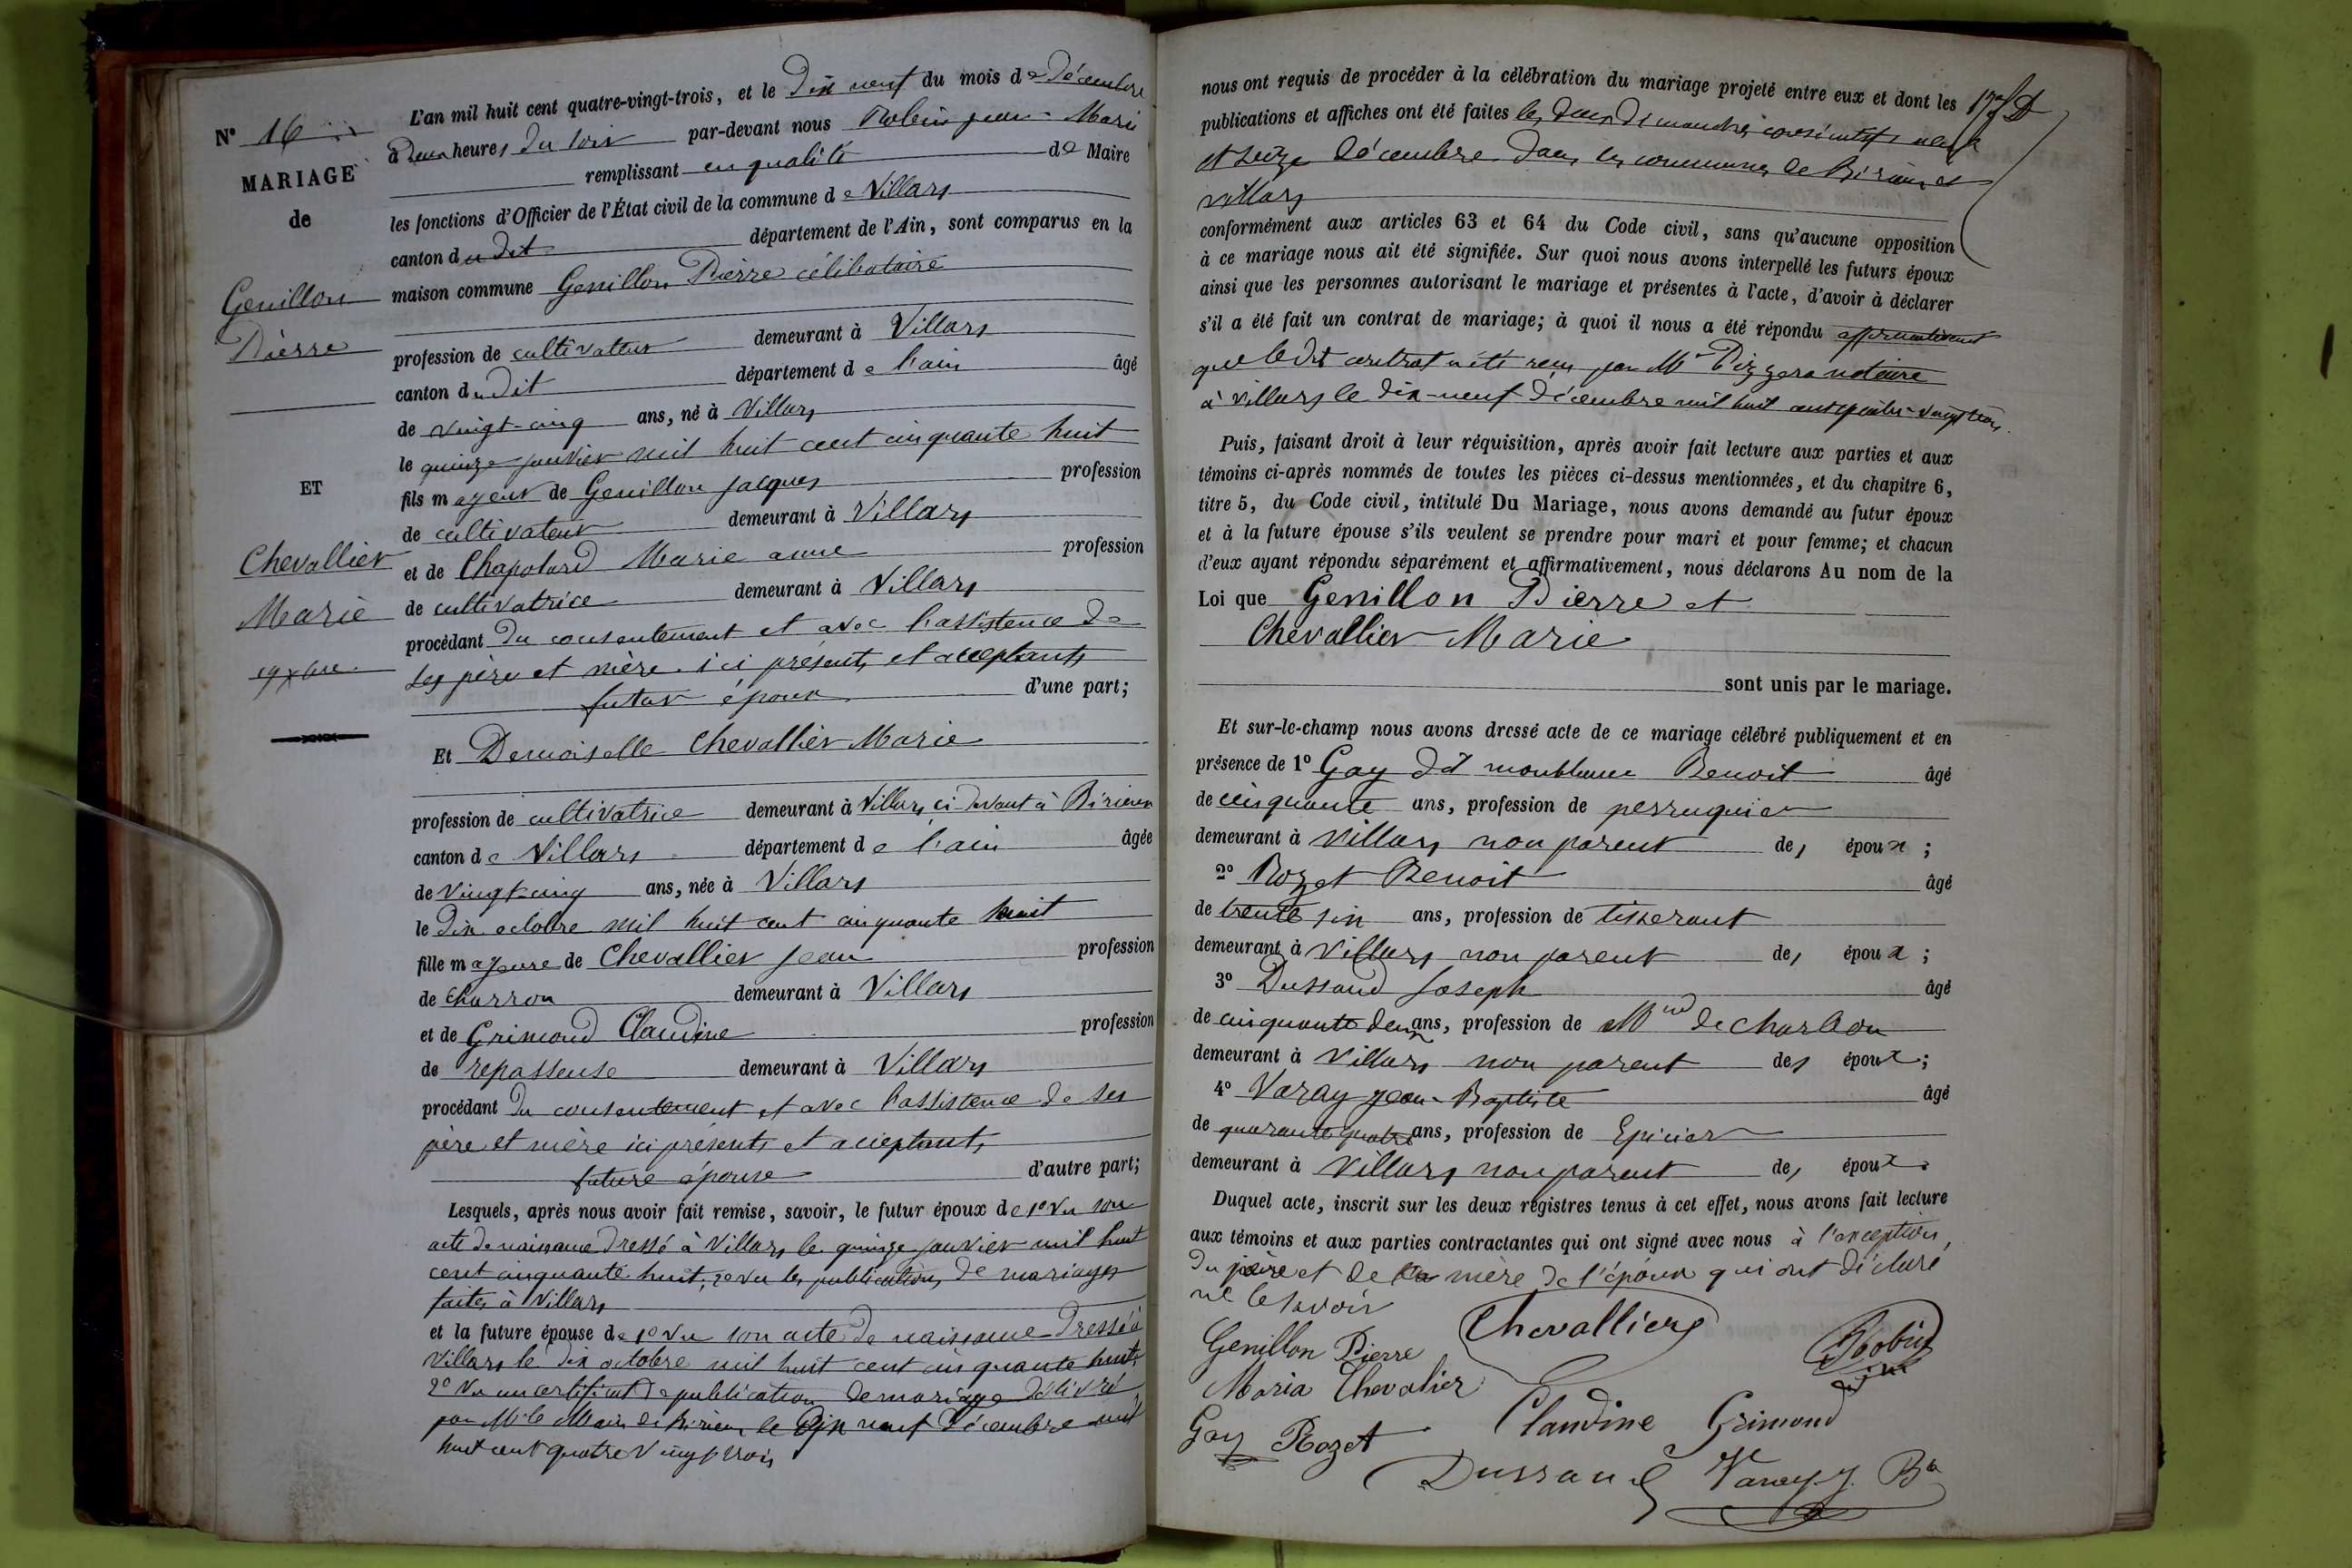 N° 16
MARIAGE
de
Genillon
Pierre
ET
Chevallier
Marie
19 xbre
L'an mil huit cent quatre-vingt-trois, et le Dix neuf du mois de Décembre
à Deux heures du soir par-devant nous Robin jean-Marie
remplissant en qualité de Maire
les fonctions d'Officier de l'État civil de la commune de Villars
canton du dit département de l'Ain, sont comparus en la
maison commune Genillon Pierre célibataire
profession de cultivateur demeurant à Villars
canton du dit département de l'ain âgé
de vingt-cinq ans, né à Villars
le quinze janvier mil huit cent cinquante huit
fils majeur de Genillon jacques profession
de cultivateur demeurant à Villars
et de Chapolard Marie anne profession
de cultivatrice demeurant à Villars
procédant du consentement et avec l'assistence de
ses père et mère ici présents et acceptants
futur époux d'une part;
Et Demoiselle Chevallier Marie
profession de cultivatrice demeurant à Villars ci devant à Birieux
canton de Villars département de l'ain âgée
de vingt-cinq ans, née à Villars
le dix octobre mil huit cent cinquante huit
fille majeure de Chevallier jean profession
de charron demeurant à Villars
et de Grimond Claudine profession
de repasseuse demeurant à Villars
procédant du consentement et avec l'assistence de ses
père et mère ici présents et acceptants
future épouse d'autre part;
Lesquels, après nous avoir fait remise, savoir, le futur époux de 1° vu son
acte de naissance dressé à Villars le quinze janvier mil huit
cent cinquante huit, 2° vu les publications de mariages
faites à Villars
et la future épouse de 1° vu son acte de naissance dressé à
Villars le dix octobre mil huit cent cinquante huit,
2° vu un certificat de publication de mariage délivré
par Mr le Maire de Birieux le dix neuf Décembre mil
huit cent quatre vingt trois
nous ont requis de procéder à la célébration du mariage projeté entre eux et dont les
publications et affiches ont été faites les deux dimanches consécutifs neuf
et seize Décembre dans les communes de Birieux et
villars
conformément aux articles 63 et 64 du Code civil, sans qu'aucune opposition
à ce mariage nous ait été signifiée. Sur quoi nous avons interpellé les futurs époux
ainsi que les personnes autorisant le mariage et présentes à l'acte, d'avoir à déclarer
s'il a été fait un contrat de mariage; à quoi il nous a été répondu affirmativement
que le dit contrat a été reçu par Mr notaire
à villars le dix-neuf Décembre mil huit cent quatre-vingt trois.
Puis, faisant droit à leur réquisition, après avoir fait lecture aux parties et aux
témoins ci-après nommés de toutes les pièces ci-dessus mentionnées, et du chapitre 6,
titre 5, du Code civil, intitulé Du Mariage, nous avons demandé au futur époux
et à la future épouse s'ils veulent se prendre pour mari et pour femme; et chacun
d'eux ayant répondu séparément et affirmativement, nous déclarons Au nom de la
Loi que Genillon Pierre et
Chevallier Marie
sont unis par le mariage.
Et sur-le-champ nous avons dressé acte de ce mariage célébré publiquement et en
présence de 1° Gay dit montblanc Benoit âgé
de cinquante ans, profession de perruquier
demeurant à Villars non parent des époux;
2° Rozet Benoit âgé
de trente six ans, profession de tisserant
demeurant à Villars non parent des époux;
3° Dussaud Joseph âgé
de cinquante deux ans, profession de Mnd de charbon
demeurant à Villars non parent des époux;
4° Varay jean-Baptiste âgé
de quarante quatre ans, profession de Epicier
demeurant à Villars non parent des époux.
Duquel acte, inscrit sur les deux registres tenus à cet effet, nous avons fait lecture
aux témoins et aux parties contractantes qui ont signé avec nous à l'exception,
du père et de la mère de l'époux qui ont déclaré
ne le savoir
Genillon Pierre Chevalliers Robin
Maria Chevalier
Claudine Grimond
Gay Rozet
Dussaud Varay J. Bte